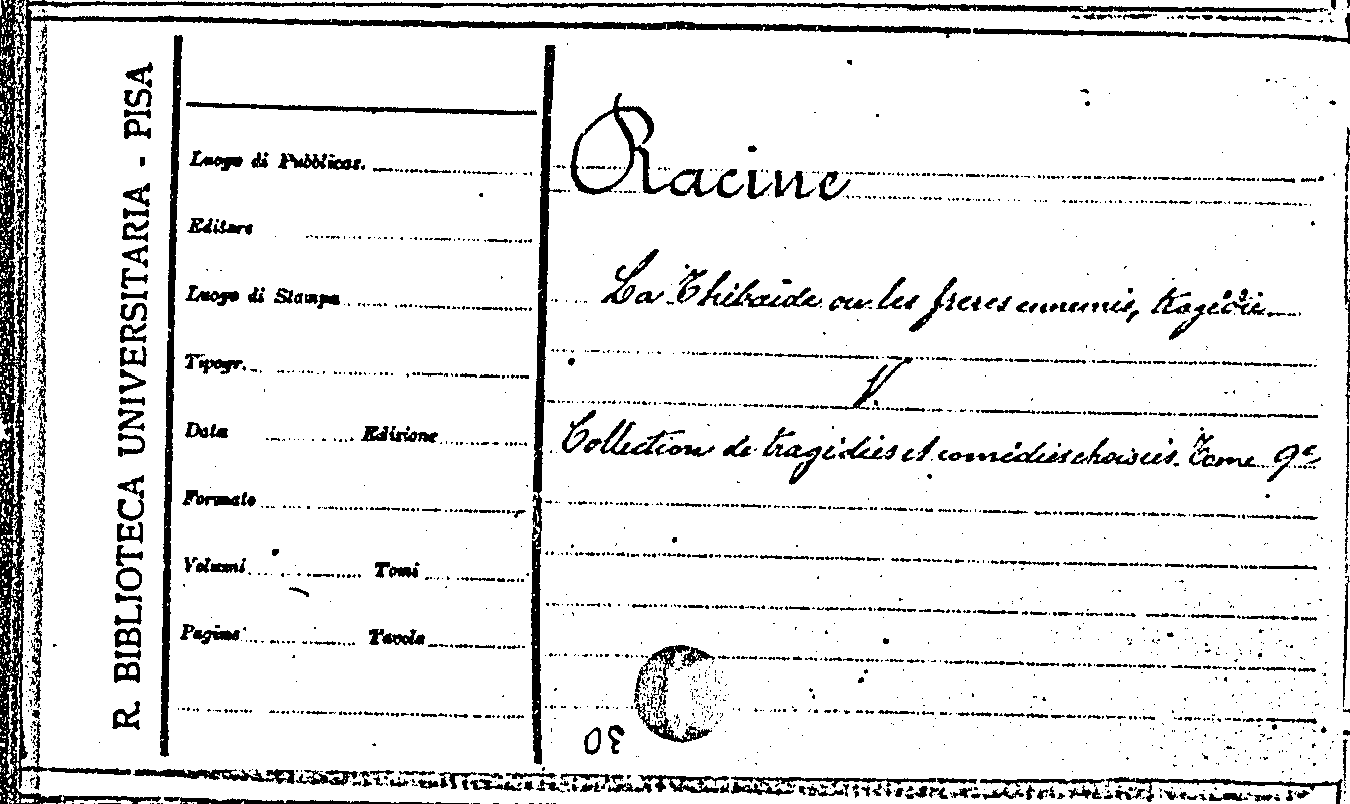 R. BIBLIOTECA UNIVERSITARIA - PISA
Luogo di Pubblicaz.
Editore
Luogo di Stampa
Tipogr.
Data Edizione
Formato
Volumi Tomi
Pagine Tavole
Racine
La Thébaïde ou les freres ennemis, tragédie
V.
Collection de tragédies et comédies choisies. Tome 9e
30